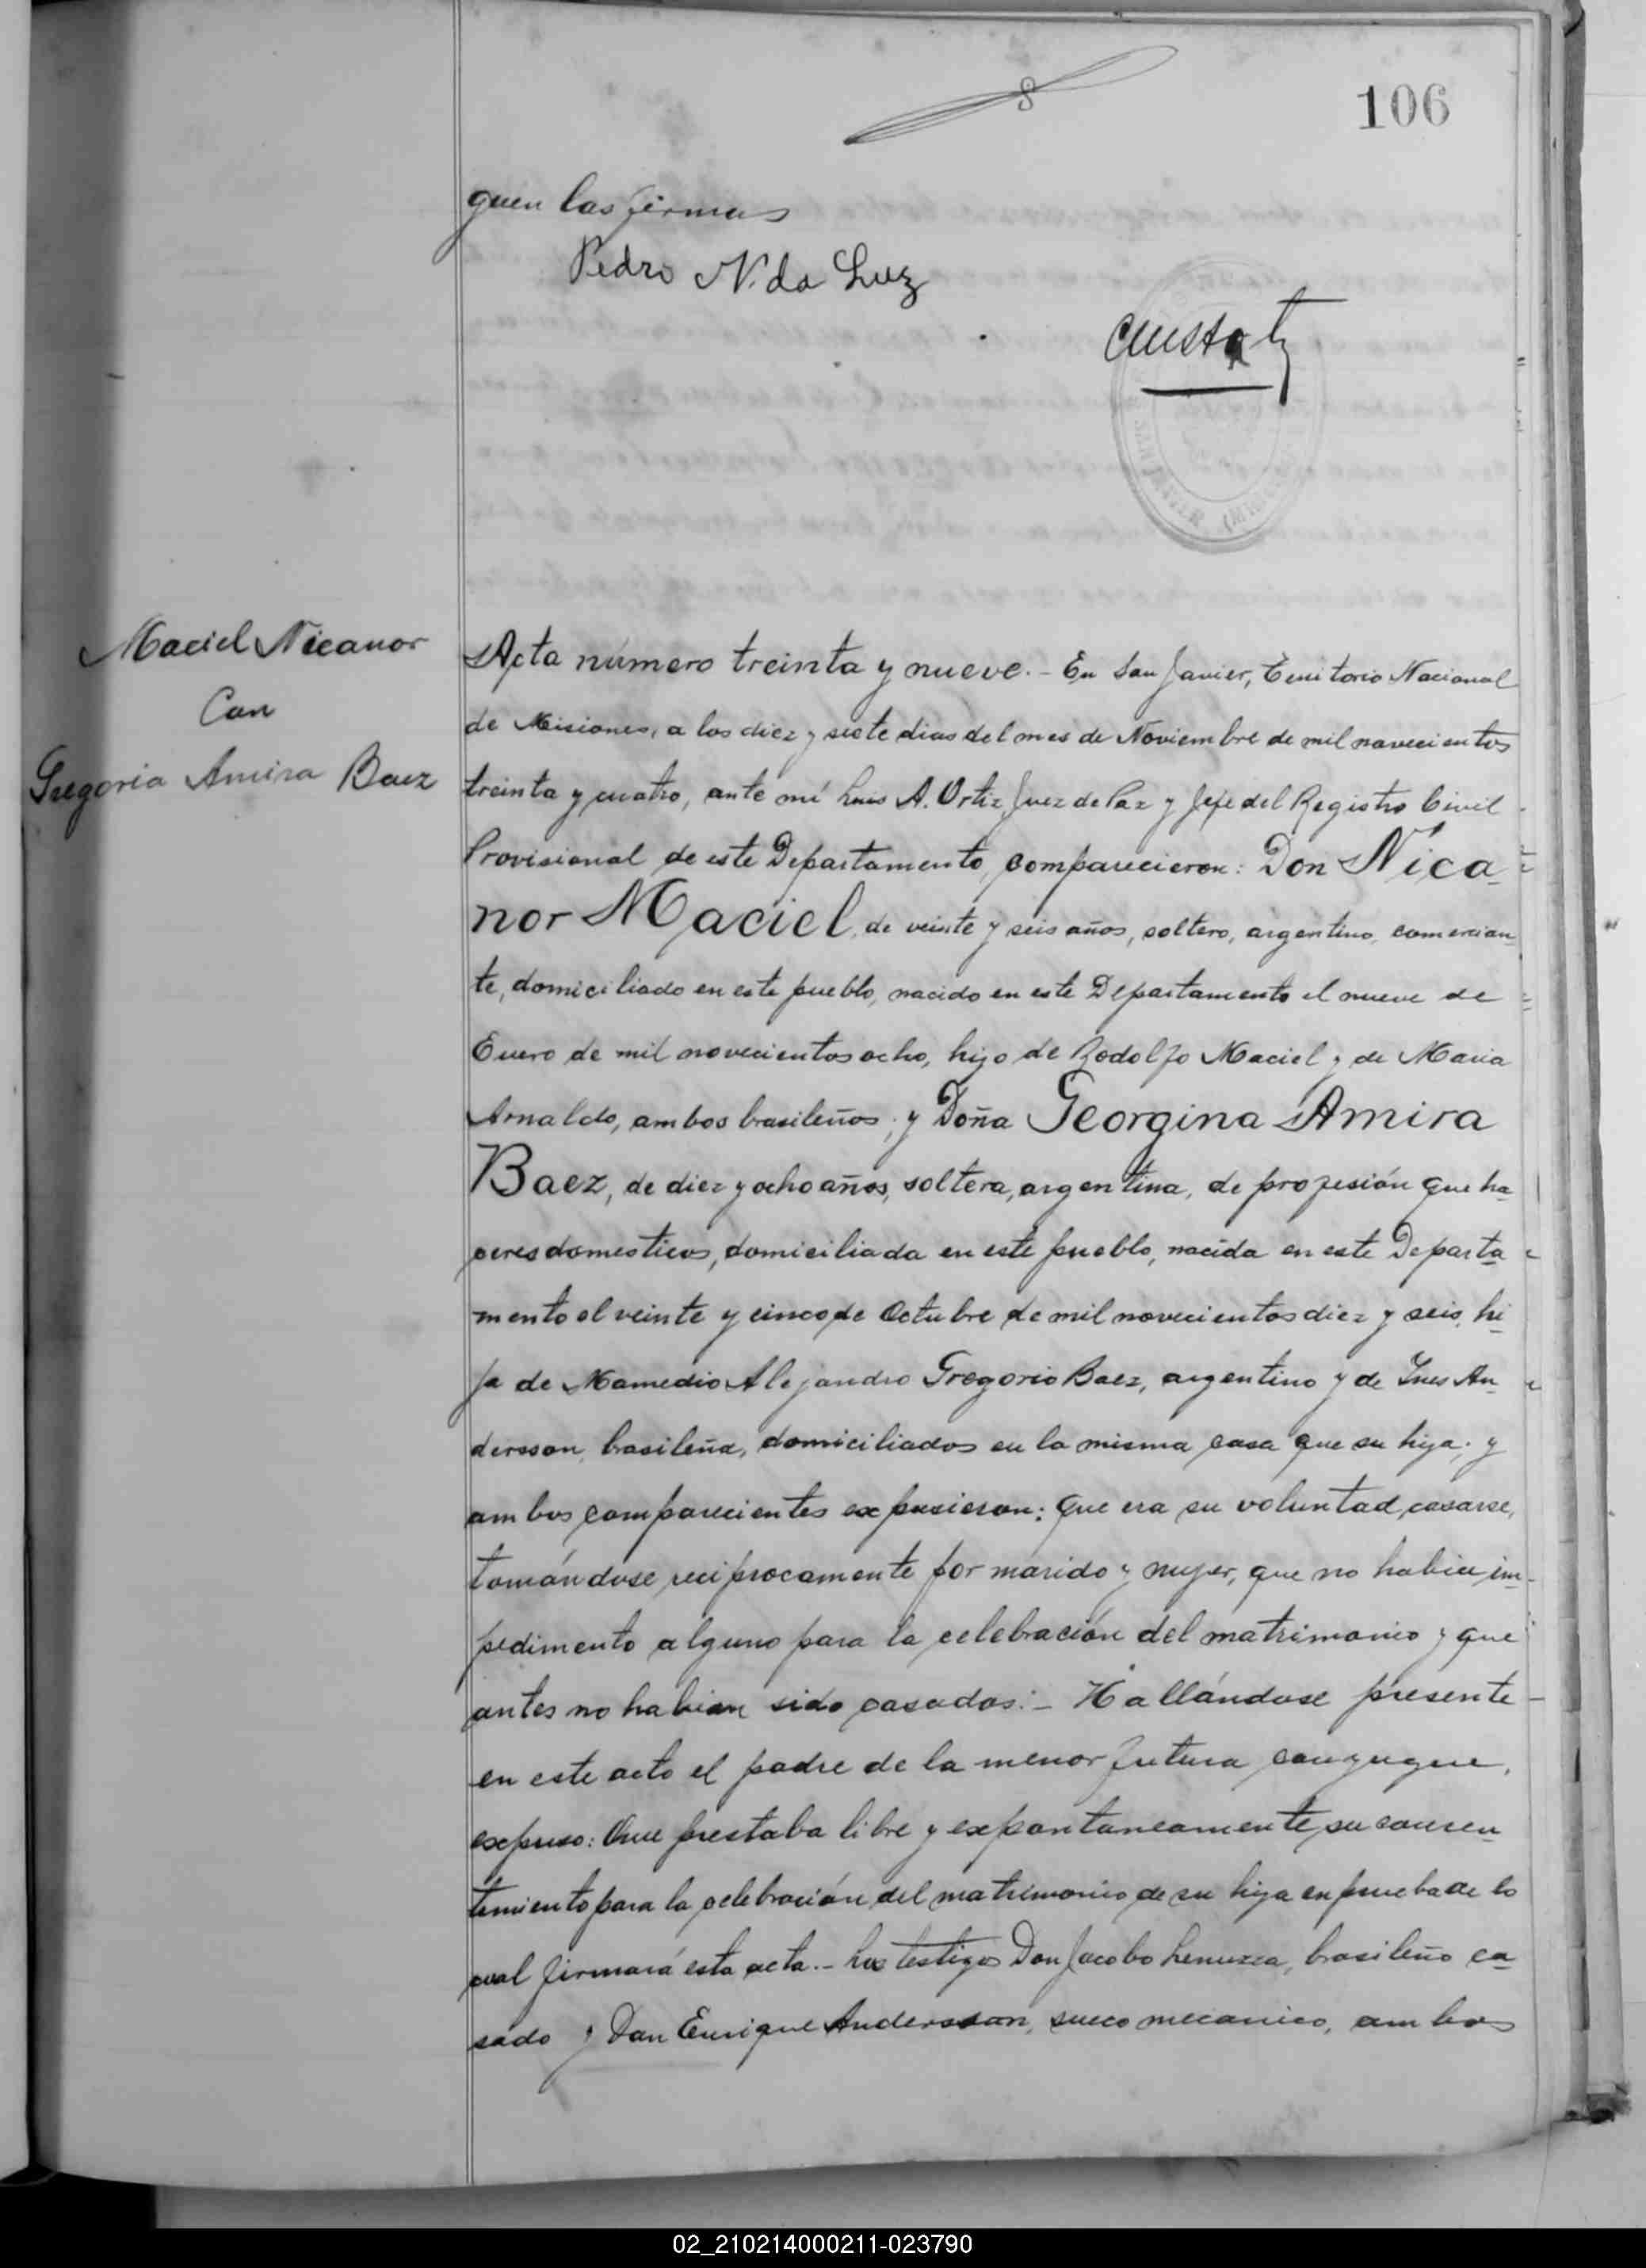 8
106
guen las firmas
Pedro N. da Luz
Maciel Nicanor
Con
Gregoria Amira Baez
Acta número treinta y nueve.- En San Javier, Territorio Nacional
de Misiones, a los diez y siete dias del mes de Noviembre de mil novecientos
treinta y cuatro, ante mí Luis A. Ortiz Juez de Paz y Jefe del Registro Civil
Provisional de este Departamento, comparecieron: Don Nica-
nor Maciel, de veinte y seis años, soltero, argentino, comercian-
te, domiciliado en este pueblo, nacido en este Departamento el nueve de
Enero de mil novecientos ocho, hijo de Rodolfo Maciel y de Maria
Arnaldo, ambos brasileños; y Doña Georgina Amira
Baez, de diez y ocho años, soltera, argentina, de profesión que ha-
ceres domesticos, domiciliada en este pueblo, nacida en este Departa-
mento el veinte y cinco de Octubre de mil novecientos diez y seis, hi-
ja de Mamedio Alejandro Gregorio Baez, argentino y de Ines An-
dersson, brasileña, domiciliados en la misma casa que su hija; y
ambos comparecientes expusieron: Que era su voluntad casarse,
tomándose reciprocamente por marido y mujer, que no habia im-
pedimento alguno para la celebración del matrimonio y que
antes no habian sido casados:- Hallándose presente
en este acto el padre de la menor futura conyugue,
expuso: Que prestaba libre y expontaneamente su consen-
temiento para la celebración del matrimonio de su hija en prueba de lo
cual firmará esta acta.- Los testigos Don Jacobo, brasileño ca-
sado y Don Enrique Andersson, sueco mecanico, ambos
02_210214000211-023790